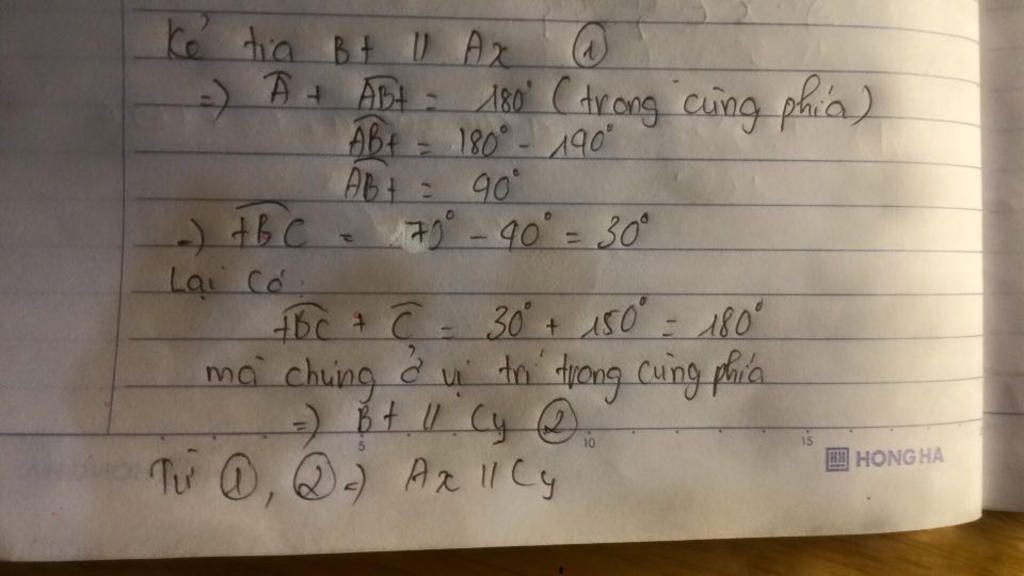 Kẻ tia Bt // Ax ①
=) Â + ABt = 180° (trong cùng phía)
ABt = 180° - 190°
ABt = 90°
=) tBC = 70° - 90° = 30°
Lại có:
tBC + C = 30° + 150° = 180°
mà chúng ở vị trí trong cùng phía
=) Bt // Cy ②
Từ ①, ② =) Ax // Cy
5 10 15
HH HONG HA